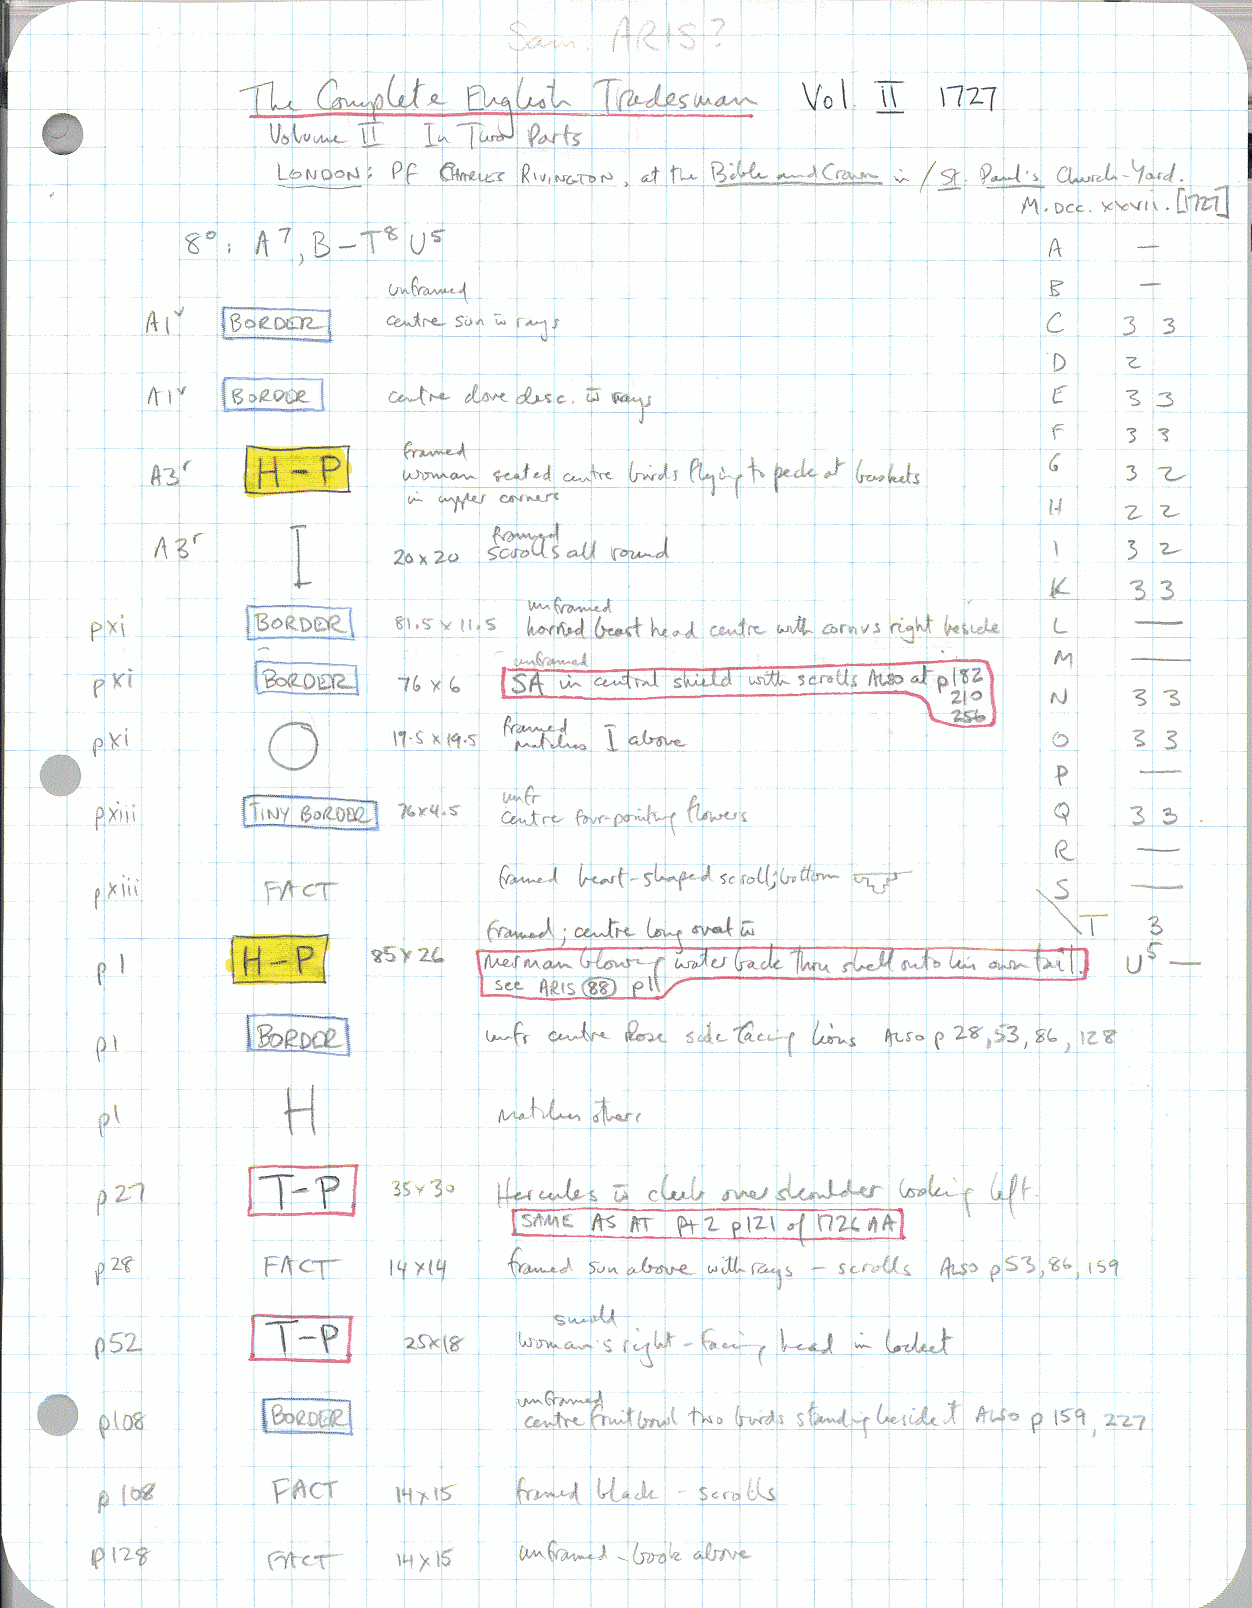 Sam. ARIS?
The Complete English Tradesman Vol. II 1727
Volume II In Two Parts
LONDON: Pf CHARLES RIVINGTON, at the Bible and Crown in / St. Paul's Church-Yard.
M.DCC.XXVII. [1727]
8°: A⁷, B–T⁸ U⁵
A —
B —
C 3 3
D 2
E 3 3
F 3 3
G 3 2
H 2 2
I 3 2
K 3 3
L —
M —
N 3 3
O 3 3
P —
Q 3 3
R —
S —
T 3
U⁵ —
unframed
A1ᵛ BORDER centre sun w̄ rays
A1ᵛ BORDER centre dove desc. w̄ rays
framed
A3ʳ H-P woman seated centre birds flying to peck at baskets
in upper corners
framed
A3ʳ I 20x20 scrolls all round
unframed
pxi BORDER 81.5 x 11.5 horned beast head centre with cornus right beside
unframed
pxi BORDER 76 x 6 SA in central shield with scrolls ALSO at p182
210
256
framed
pxi O 19.5x19.5 matches I above
unfr
pxiii TINY BORDER 76x4.5 centre four-pointing flowers
pxiii FACT framed heart-shaped scroll; bottom
framed; centre long oval w̄
p1 H-P 85x26 merman blowing water back thru shell onto his own tail.
see ARIS (88) p11
p1 BORDER unfr centre Rose side facing lions ALSO p 28, 53, 86, 128
p1 H matches others
p27 T-P 35x30 Hercules w̄ club over shoulder looking left.
SAME AS AT Pt 2 p121 of 1726 AA
p28 FACT 14x14 framed sun above with rays – scrolls ALSO p53, 86, 159
small
p52 T-P 25x18 woman's right-facing head in locket
unframed
p108 BORDER centre fruitbowl two birds standing beside it ALSO p 159, 227
p108 FACT 14x15 framed black – scrolls
p128 FACT 14x15 unframed – book above